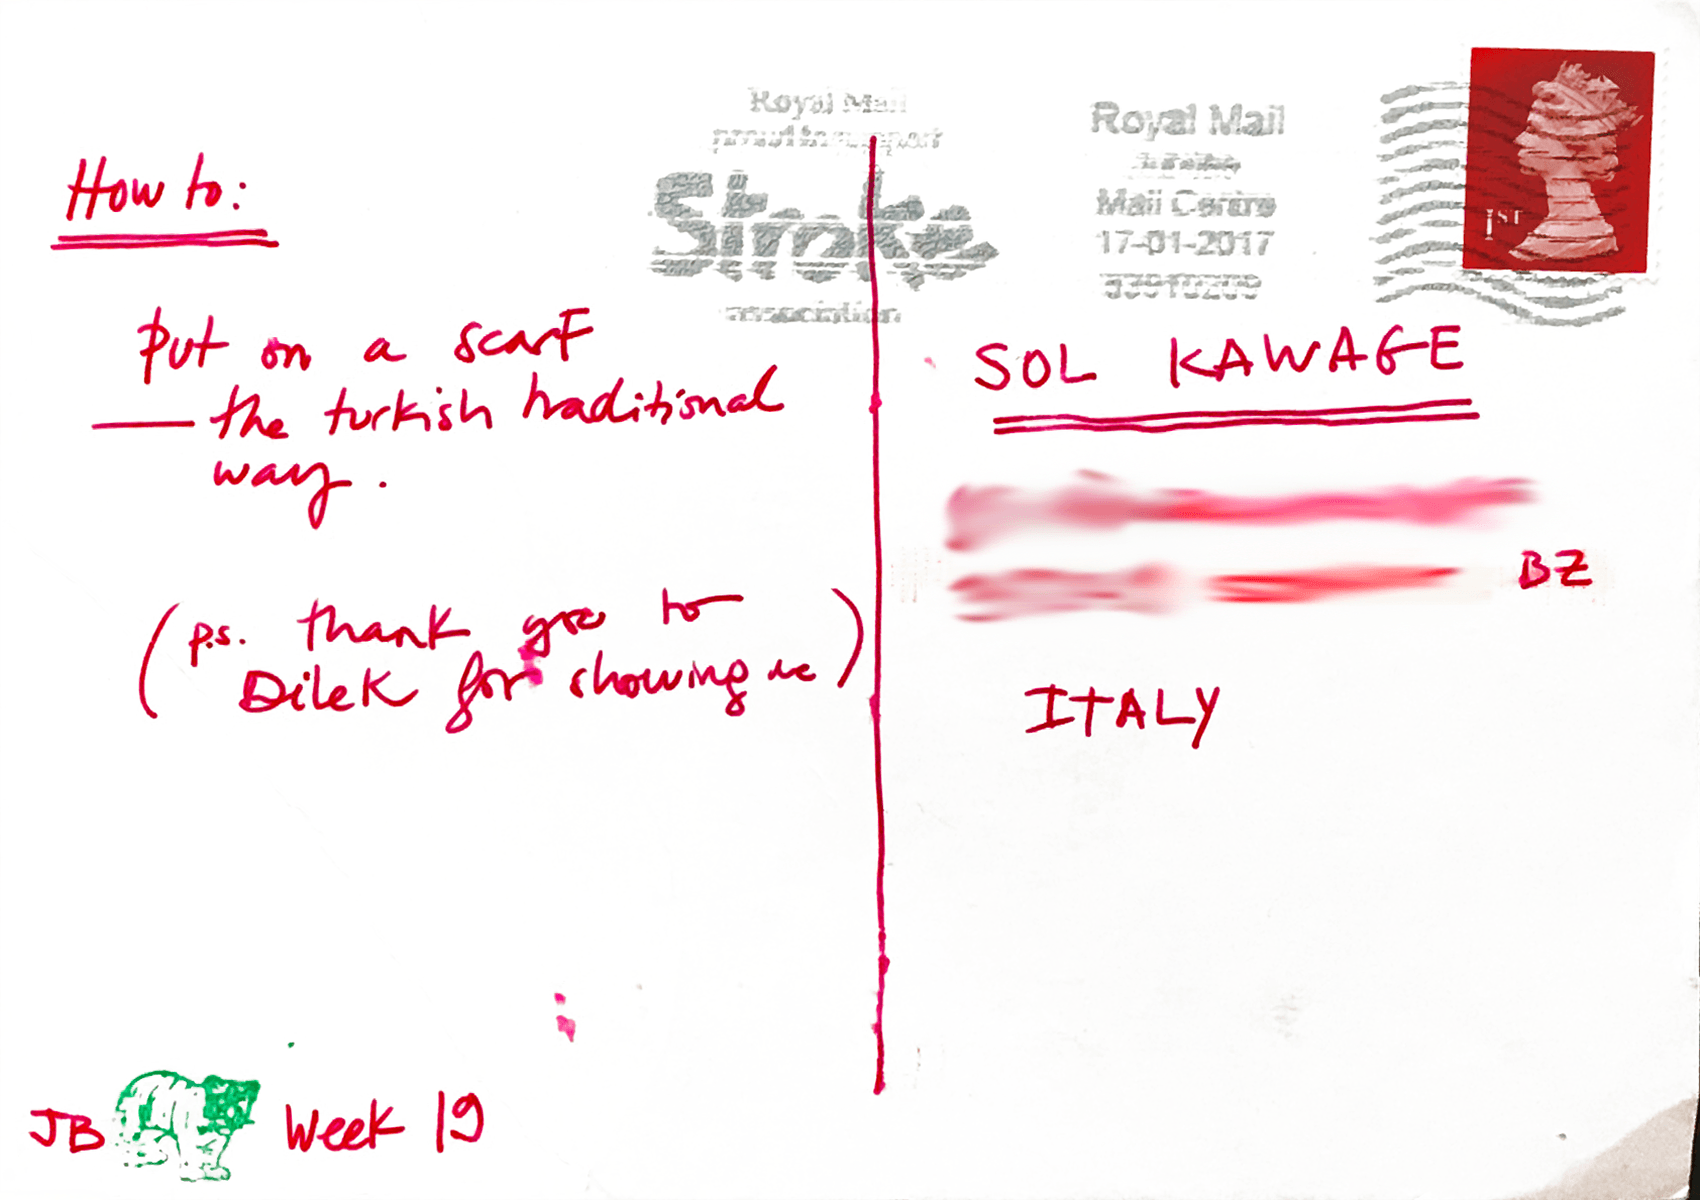 How to:
put on a scarf
— the turkish traditional
way.
(p.s. thank you to
Dilek for showing me)
JB Week 19
Royal Mail
proud to support
Stroke
association
Royal Mail
Mail Centre
17-01-2017
1ST
SOL KAWAGE
BZ
ITALY